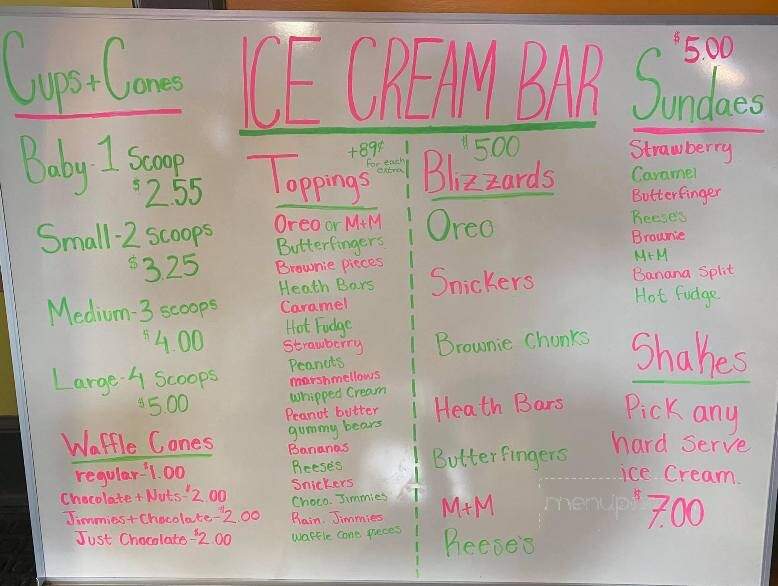 Cups + Cones
Baby-1 Scoop
$2.55
Small-2 scoops
$3.25
Medium-3 scoops
$4.00
Large-4 Scoops
$5.00
Waffle Cones
regular-$1.00
Chocolate + Nuts-$2.00
Jimmies+Chocolate-$2.00
Just Chocolate-$2.00
ICE CREAM BAR
+89¢
for each
extra
Toppings
Oreo or M+M
Butterfingers
Brownie pieces
Heath Bars
Caramel
Hot Fudge
Strawberry
Peanuts
marshmellows
whipped Cream
Peanut butter
gummy bears
Bananas
Reese's
Snickers
Choco. Jimmies
Rain. Jimmies
waffle cone pieces
$5.00
Blizzards
Oreo
Snickers
Brownie Chunks
Heath Bars
Butterfingers
M+M
Reese's
$5.00
Sundaes
Strawberry
Caramel
Butterfinger
Reese's
Brownie
M+M
Banana Split
Hot fudge
Shakes
Pick any
hard serve
ice Cream.
$7.00